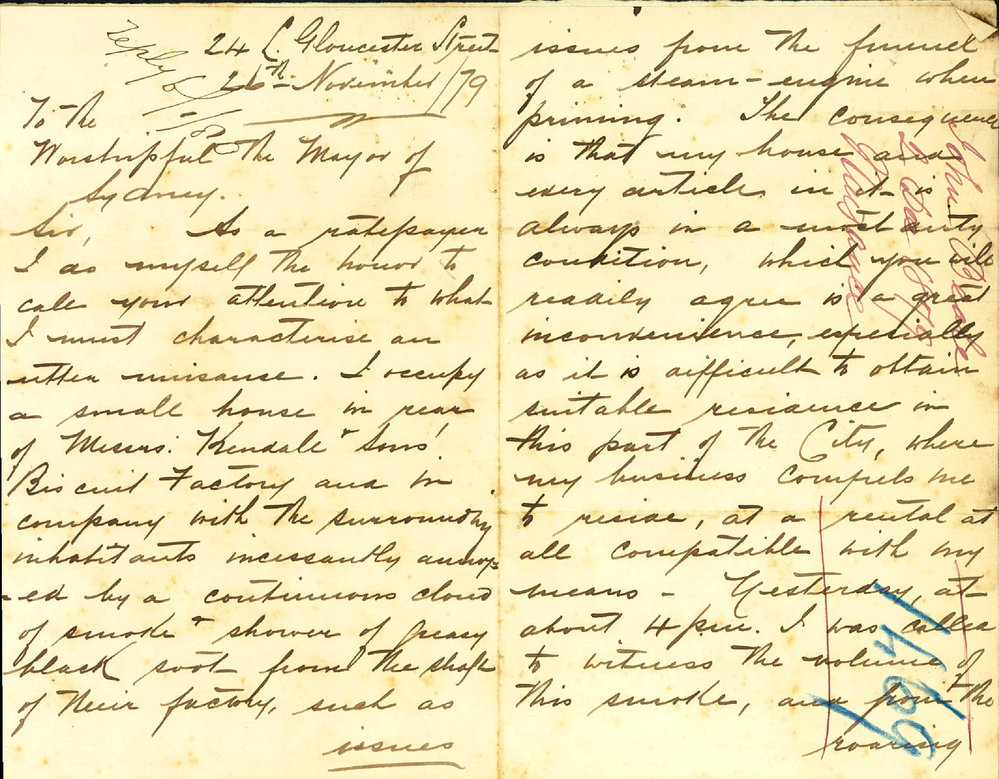 24 L. Gloucester Street
26th November /79
reply 6/1/80
To the
Worshipful the Mayor of
Sydney.
Sir, As a ratepayer
I do myself the honor to
call your attention to what
I must characterise an
utter nuisance. I occupy
a small house in rear
of Messrs. Kendale & Sons'
Biscuit Factory and in
company with the surrounding
inhabitants incessantly annoy-
-ed by a continuous cloud
of smoke & shower of greasy
black soot from the shaft
of their factory, such as
issues
issues from the funnel
of a steam-engine when
priming. The consequence
is that my house and
every article in it is
always in a most dirty
condition, which you will
readily agree is a great
inconvenience, especially
as it is difficult to obtain
suitable residence in
this part of the City, where
my business compels me
to reside, at a rental at
all compatible with my
means - Yesterday, at
about 4 pm. I was called
to witness the volume of
this smoke, and from the
roaring
John
26 Nov 1879
Nuisance